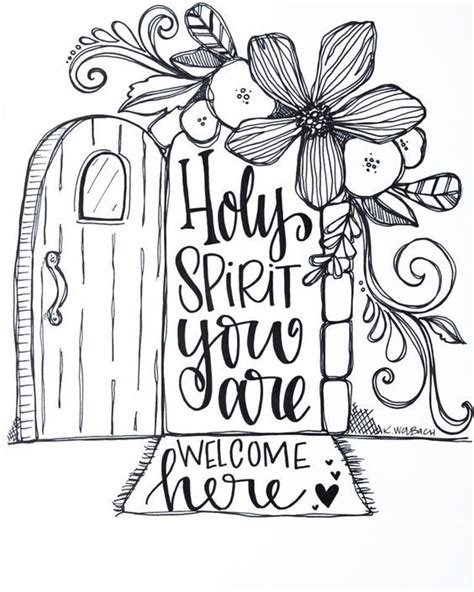 Holy
SPIRIT
you
are
WELCOME
here
K. WOLBACH